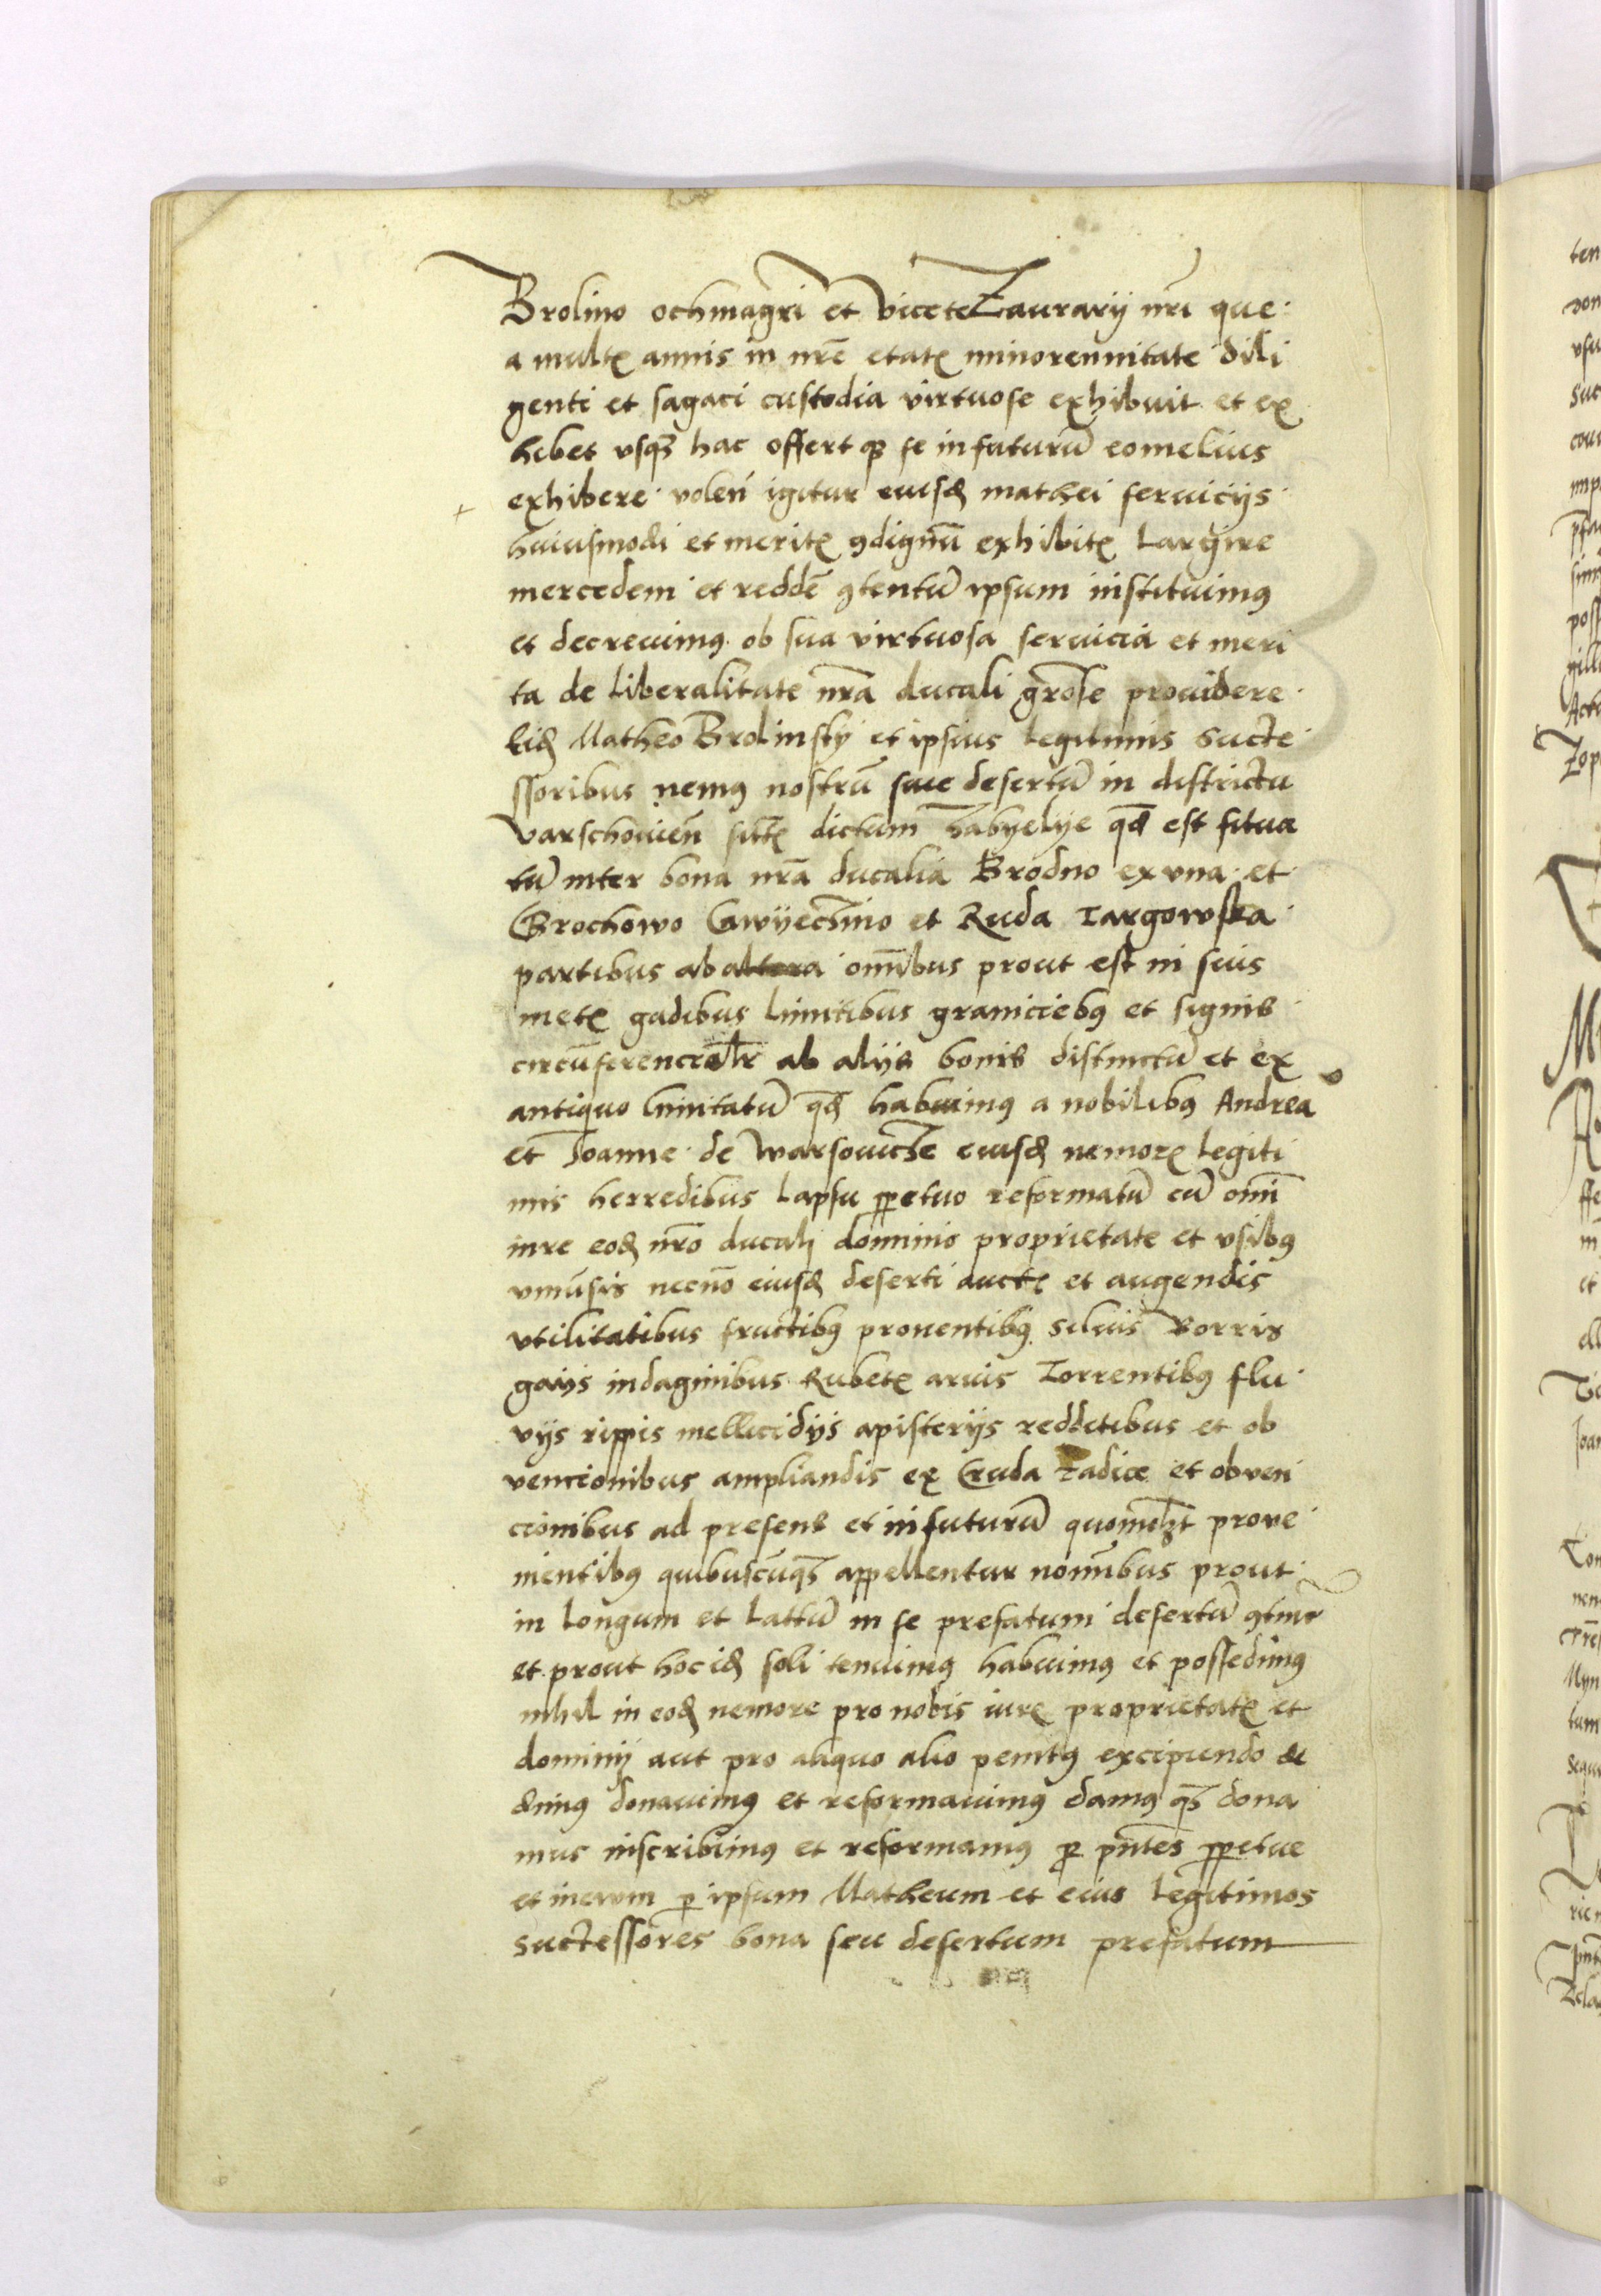 Brolino ochmagri et Vicetezaurarij nri que
a multis annis in nre etatis minorennitate dili
genti et sagaci custodia virtuose exhibuit et ex
hibet usque hac offert que se in futurum eo melius
exhibere volen igitur eiusdem mathei seruicijs
huiusmodi et meritis condignum exhibitis Largire
mercedem et reddere contentum ipsum instituimus
et decreuimus ob sua virtuosa seruicia et meri
ta de Liberalitate nra ducali grose prouidere
Eidem Matheo Brolinsky et ipsius Legitimis Succe
ssoribus nemus nostrum siue desertum in districtu
Varschouien dictum Zabyelye quod est situa
tum inter bona nra ducalia Brodno ex una et
Grochowo et Ruda Targowska
partibus ab altera omnibus prout est in suis
metis gadibus Limitibus graniciebus et signis
circumferencialr ab alijs bonis distinctum et ex
antiquo limitatum quod habuimus a nobilibus Andrea
et Joanne de Warsouicze eiusdem nemoris Legiti
mis herredibus Lapsu perpetuo reformatum cum omni
iure eodem nro ducali dominio proprietate et usibus
vniuersis necno eiusdem deserti auctis et augendis
vtilitatibus fructibus prouentibus Siluis Borris
gaijs indaginibus Rubetis aruis Torrentibus flu
vijs rippis mellicidijs apisterijs redditibus et ob
vencionibus ampliandis ex Cruda radice et obven
cionibus ad presens et in futurum quomolzt prove
nientibus quibuscumque appellentur nominibus prout
in Longum et Lattum in se prefatum desertum continetur
et prout hoc idem soli tenuimus habuimus et possedimus
nihil in eodem nemore pro nobis iuris proprietatis et
dominij aut pro aliquo alio penitus excipiendo de
dimus donauimus et reformauimus damus que dona
mus inscribimus et reformamus per pntes perpetue
et in evum per ipsum Matheum et eius Legitimos
Successores bona seu desertum prefatum